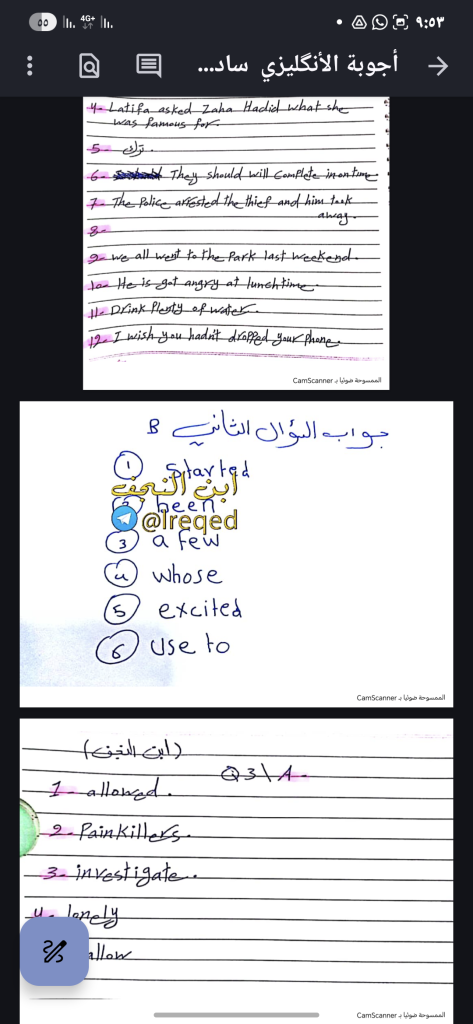 ٥٥ 4G+ ٩:٥٣
أجوبة الأنگليزي ساد...
4- Latifa asked Zaha Hadid what she
was famous for.
5- ترك.
6- They should will complete in on time.
7- The Police arrested the thief and him took
away.
8-
9- we all went to the Park last weekend.
10- He is got angry at lunchtime.
11- Drink Plenty of water.
12- I wish you hadn't dropped your Phone.
الممسوحة ضوئيا بـ CamScanner
جواب السؤال الثاني B
1 started
ابن النجف
2 been
@lreqed
3 a few
4 whose
5 excited
6 use to
الممسوحة ضوئيا بـ CamScanner
(ابن النجف)
Q3\A-
1- allowed.
2- Painkillers.
3- investigate.
4- lonely
allow
الممسوحة ضوئيا بـ CamScanner